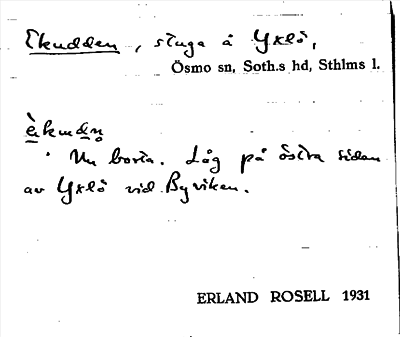 Ekudden, stuga å Yxlö,
Ösmo sn, Soth.s hd, Sthlms l.
è̱kuḏṇ
Nu borta. Låg på östra sidan
av Yxlö vid Byviken.
ERLAND ROSELL 1931